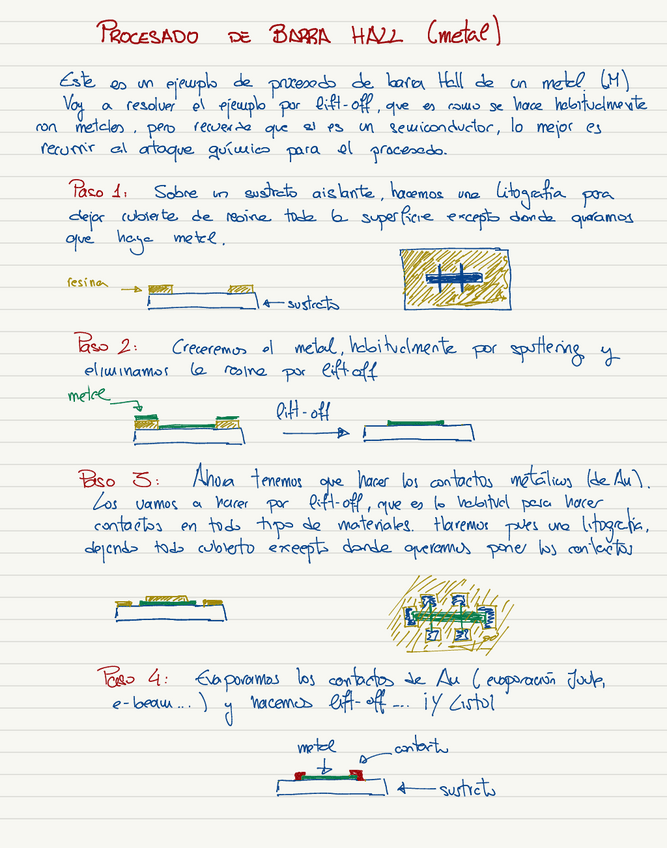 PROCESADO DE BARRA HALL (metal)
Este es un ejemplo de procesado de barra Hall de un metal (M)
Voy a resolver el ejemplo por lift-off, que es como se hace habitualmente
con metales, pero recuerda que si es un semiconductor, lo mejor es
recurrir al ataque químico para el procesado.
Paso 1: Sobre un sustrato aislante, hacemos una litografía para
dejar cubierta de resina toda la superficie excepto donde queramos
que haya metal.
resina
sustrato
Paso 2: Creceremos el metal, habitualmente por sputtering y
eliminamos la resina por lift off
metal
lift-off
Paso 3: Ahora tenemos que hacer los contactos metálicos (de Au).
Los vamos a hacer por lift-off, que es lo habitual para hacer
contactos en todo tipo de materiales. Haremos pues una litografía,
dejando todo cubierto excepto donde queramos poner los contactos
Paso 4: Evaporamos los contactos de Au (evaporación Joule,
e-beam...) y hacemos lift-off... ¡Y Listo!
metal
contacto
sustrato